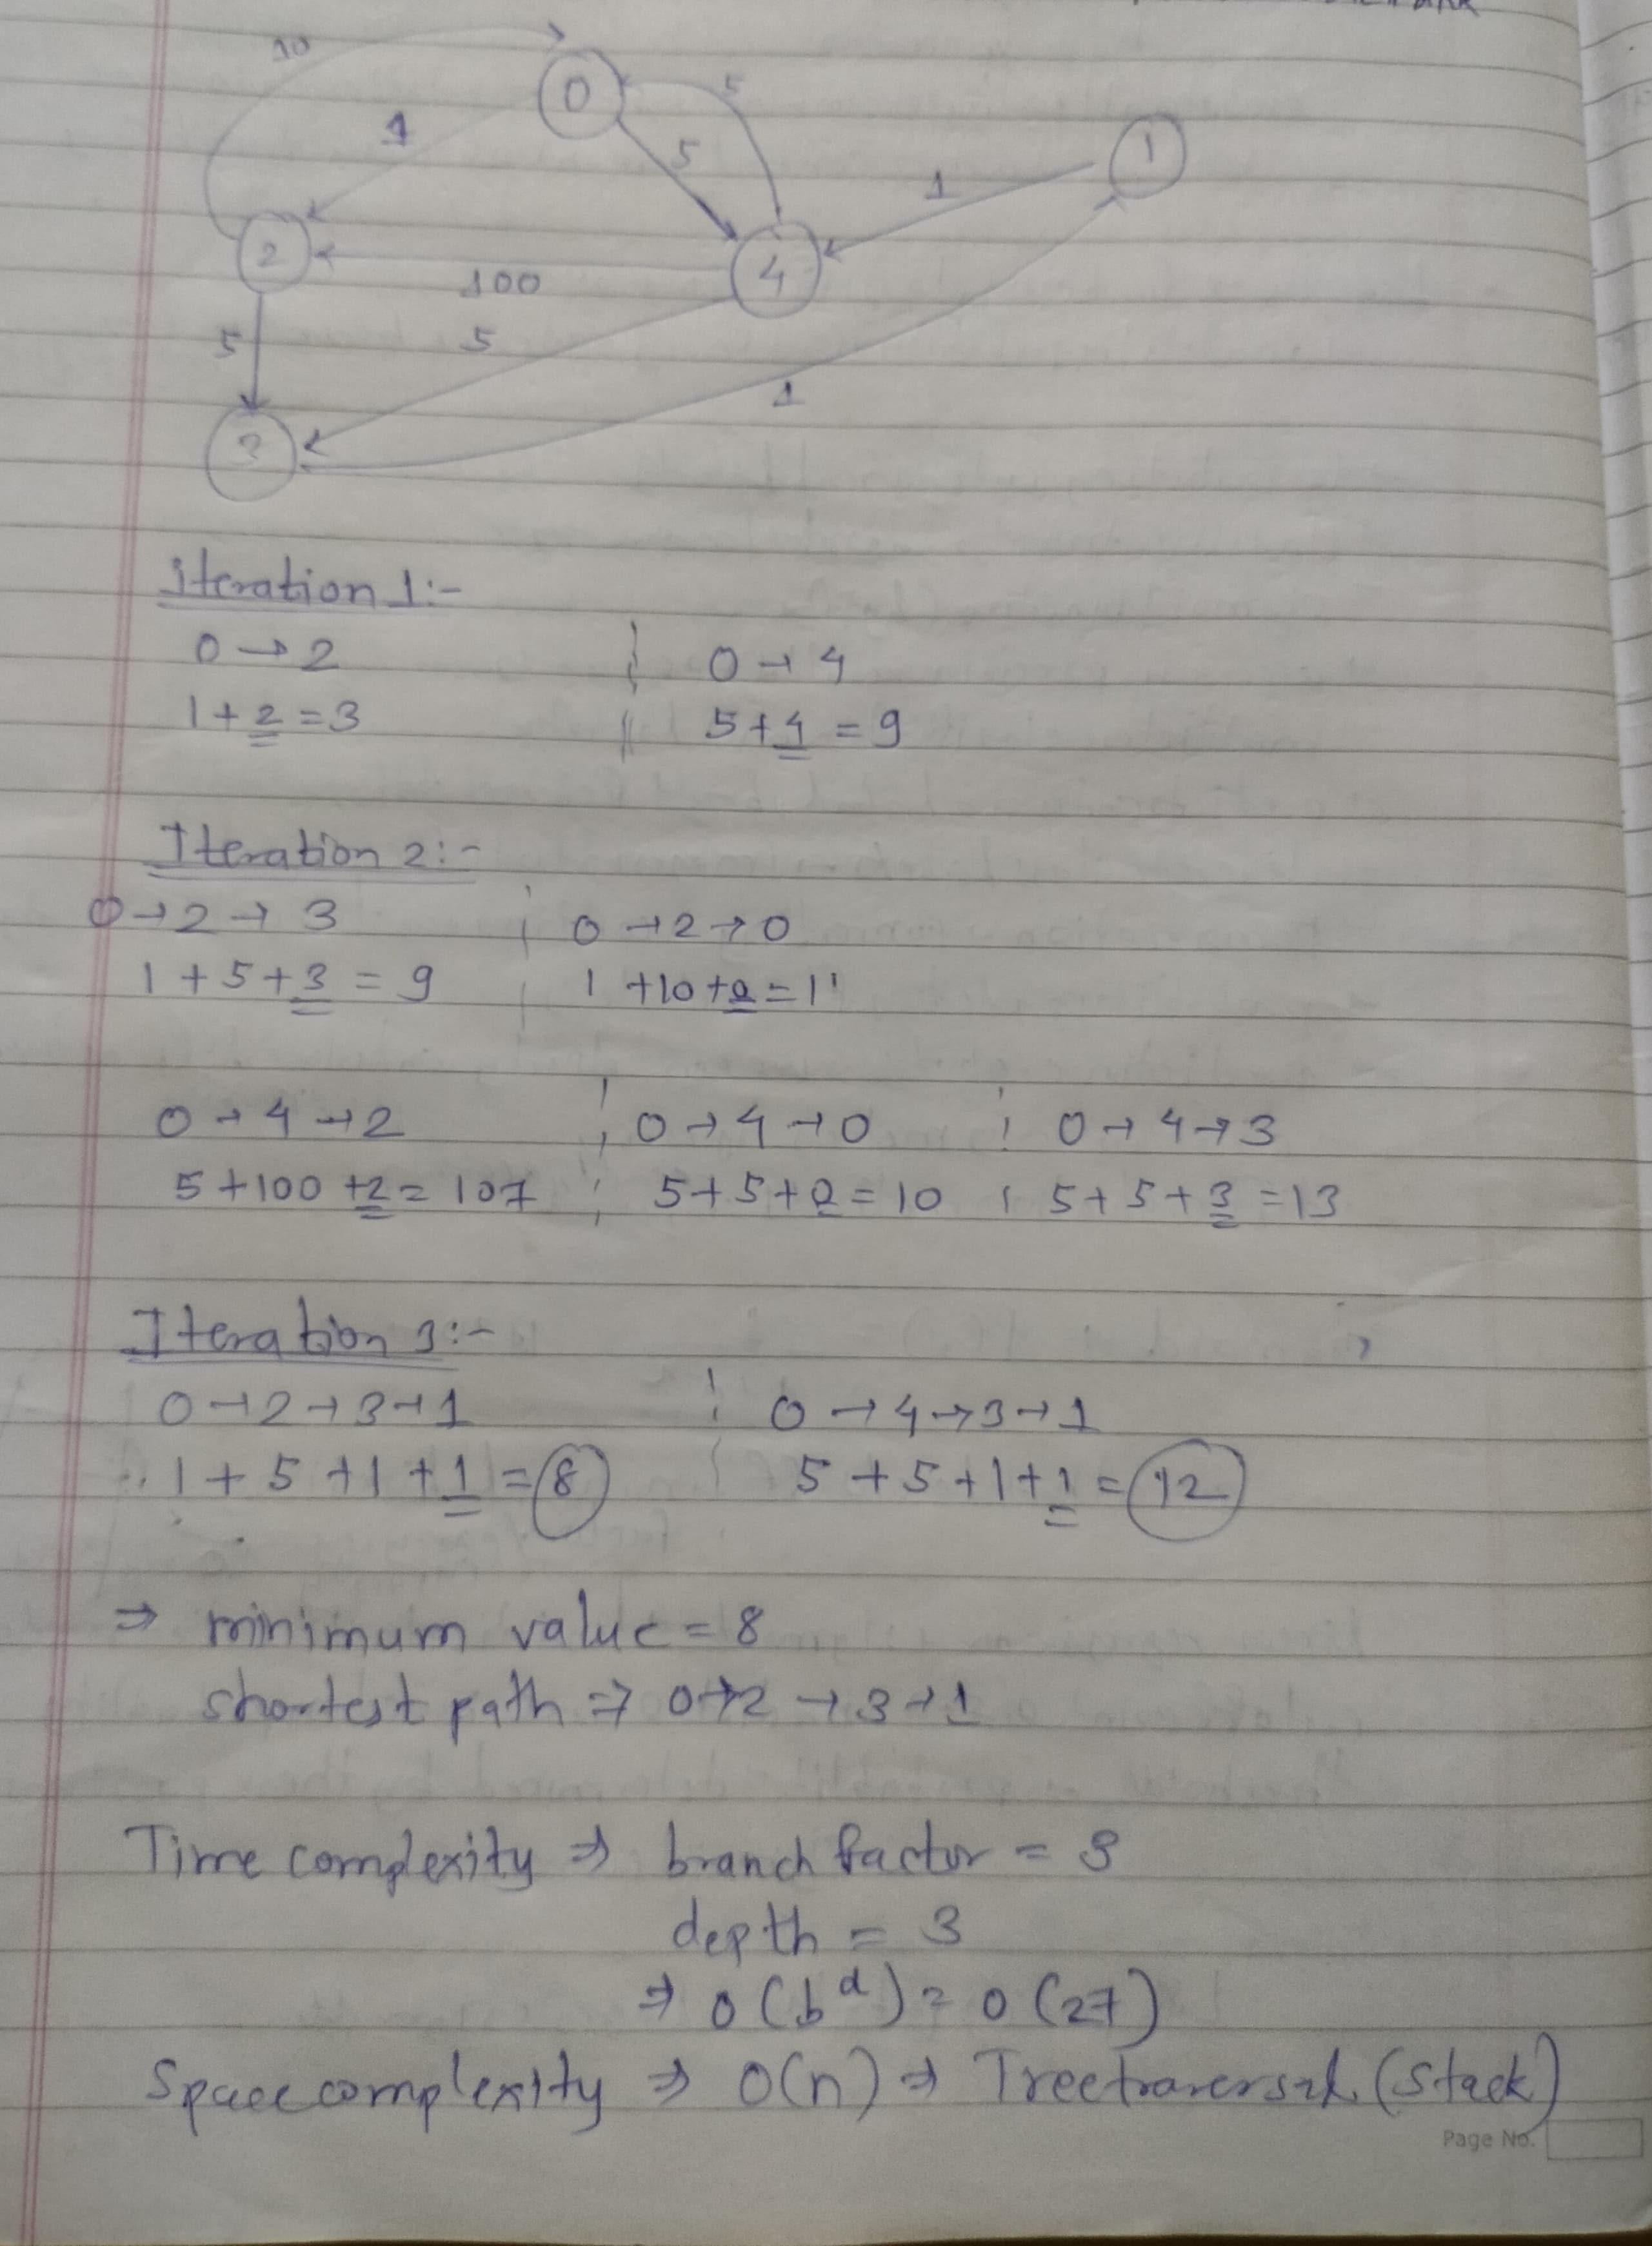 10
0
5
1
1
5
1
2
100
4
5
5
1
3
iteration 1:-
0 → 2 ¦ 0 → 4
1 + 2 = 3 ‖ 5 + 4 = 9
Iteration 2:-
0 → 2 → 3 ¦ 0 → 2 → 0
1 + 5 + 3 = 9 ¦ 1 + 10 + 0 = 11
0 → 4 → 2 ¦ 0 → 4 → 0 ¦ 0 → 4 → 3
5 + 100 + 2 = 107 ¦ 5 + 5 + 0 = 10 ¦ 5 + 5 + 3 = 13
Iteration 3:-
0 → 2 → 3 → 1 ¦ 0 → 4 → 3 → 1
1 + 5 + 1 + 1 = 8 ¦ 5 + 5 + 1 + 1 = 12
⇒ minimum value = 8
shortest path ⇒ 0 → 2 → 3 → 1
Time complexity ⇒ branch factor = 3
depth = 3
⇒ O(b^d) = O(27)
Space complexity ⇒ O(n) ⇒ Tree traversal (Stack)
Page No.